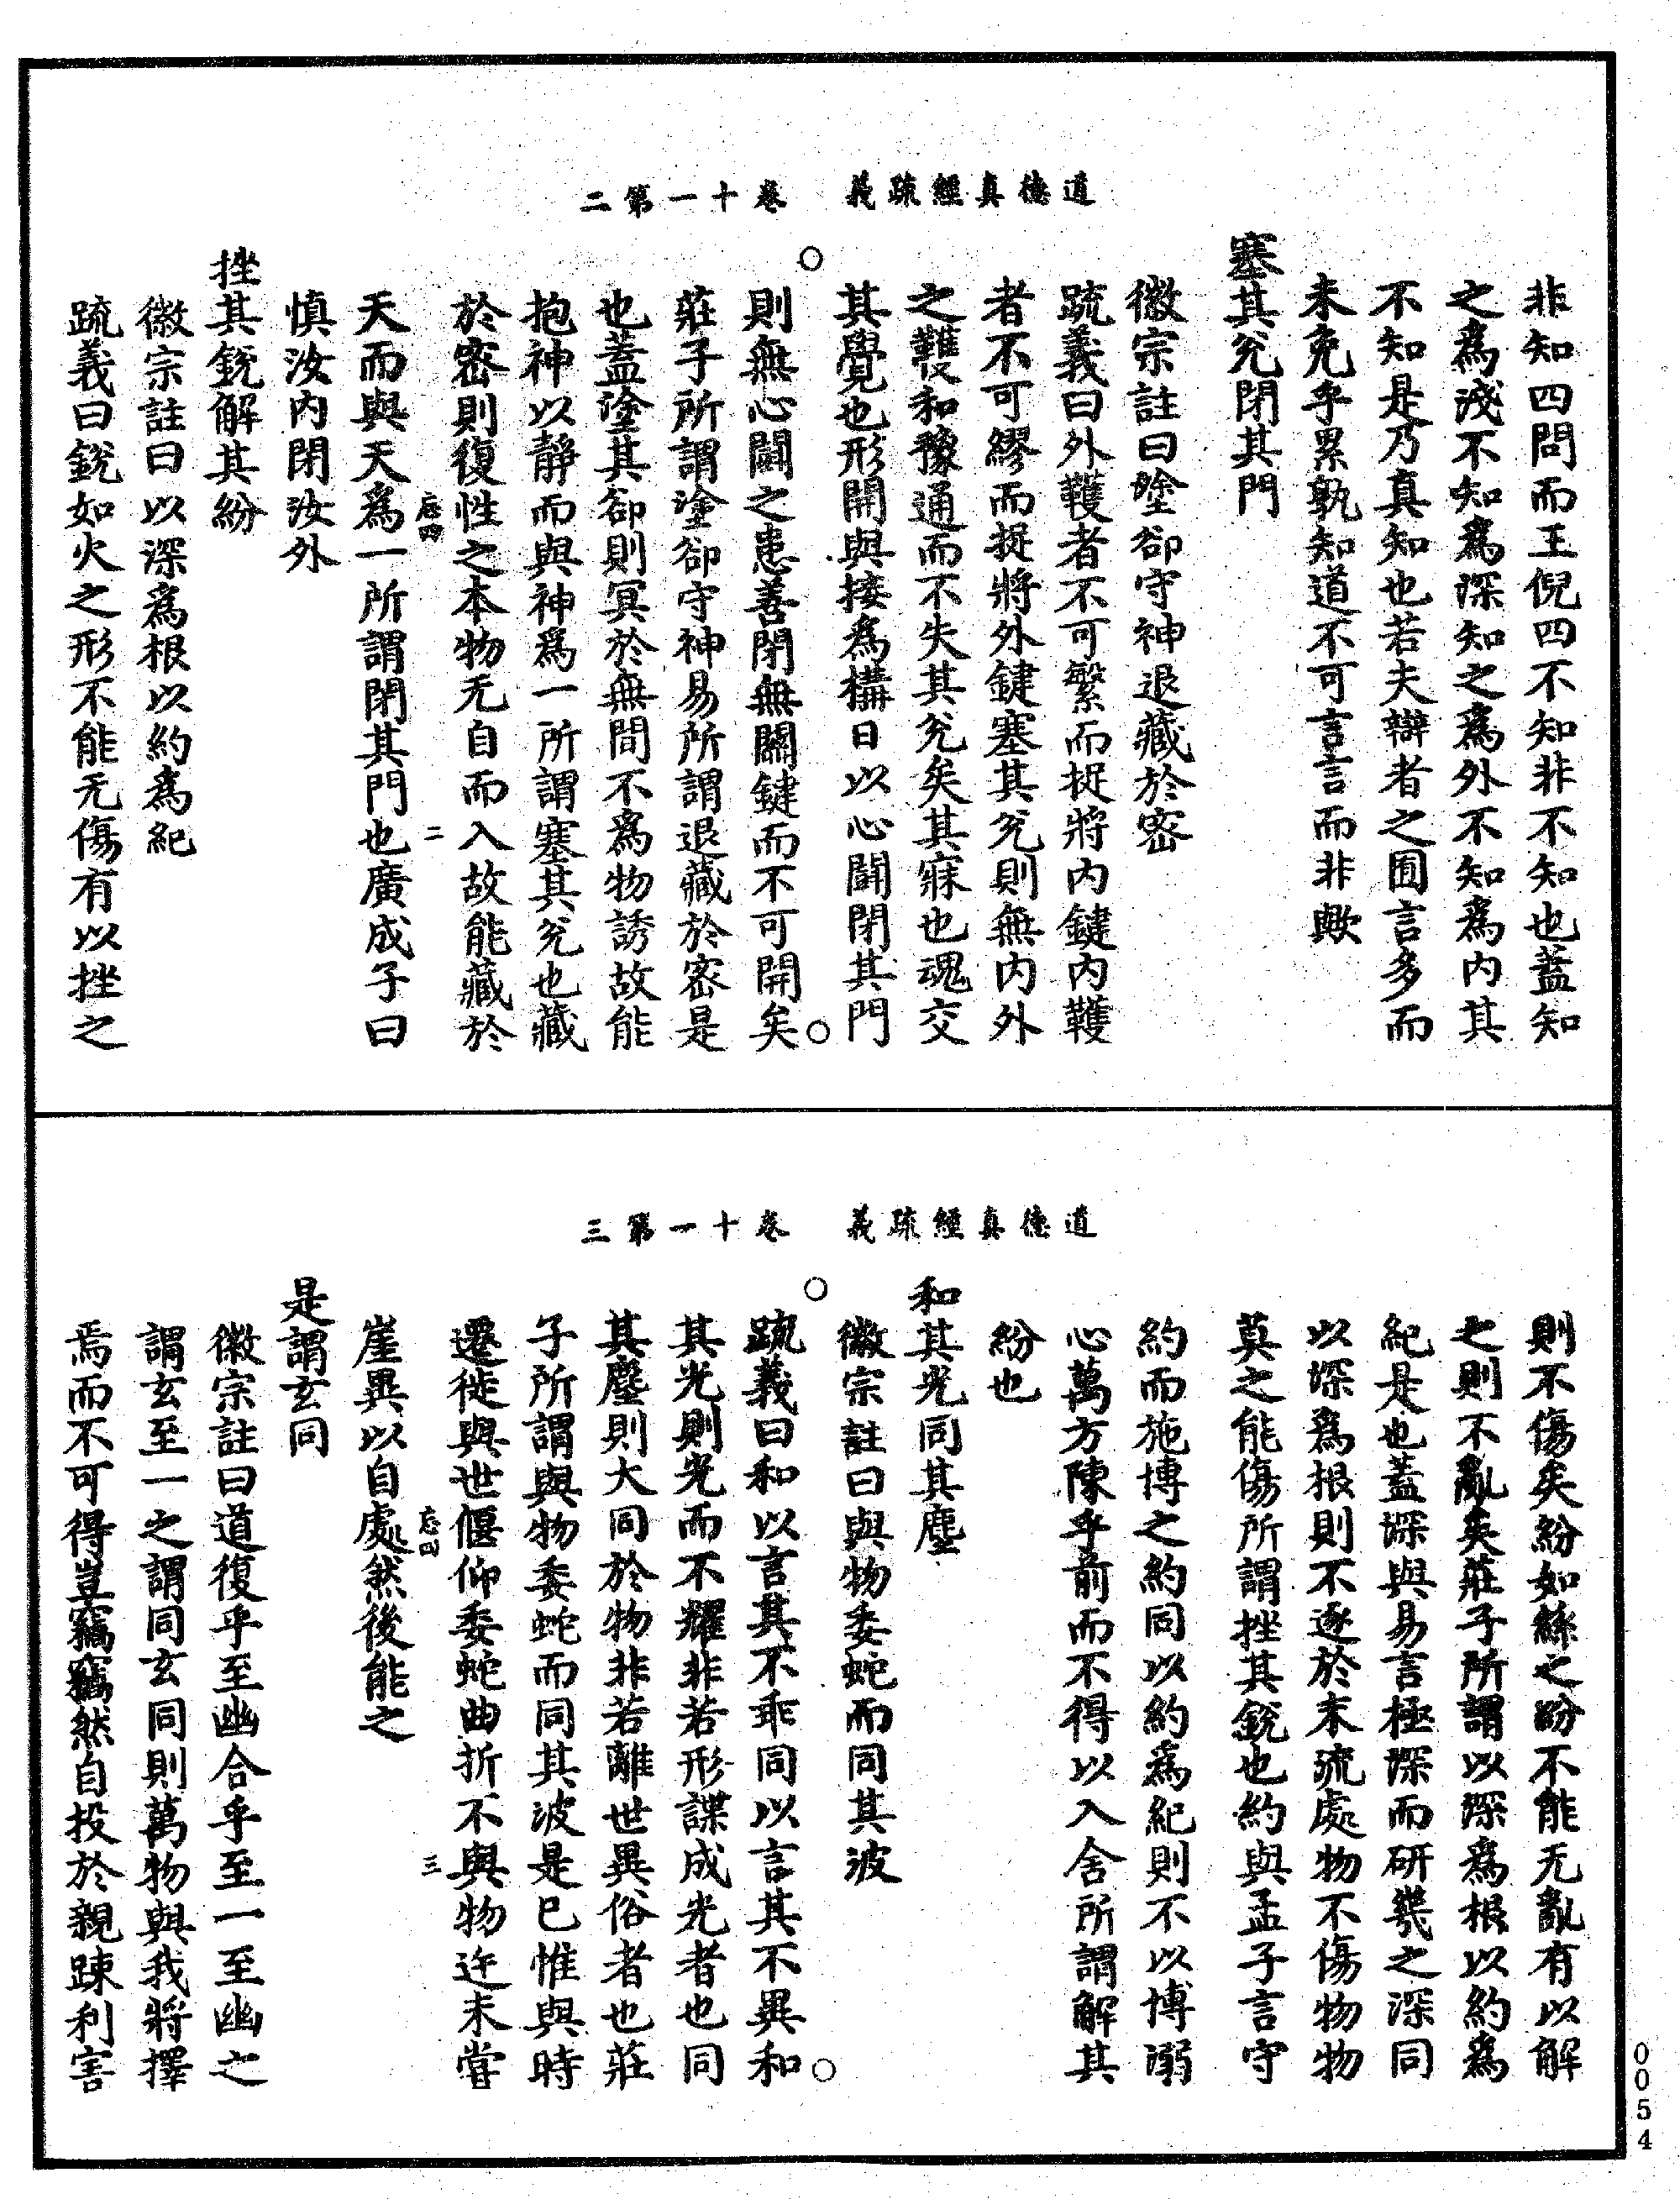 道德真經疏義　卷十一第二
非知四問而王倪四不知非不知也蓋知
之爲淺不知爲深知之爲外不知爲內其
不知是乃真知也若夫辯者之囿言多而
未免乎累孰知道不可言言而非歟
塞其兊閉其門
徽宗註曰塗郤守神退藏於密
疏義曰外韄者不可繁而捉將內鍵內韄
者不可繆而捉將外鍵塞其兊則無內外
之韄和豫通而不失其兊矣其寐也魂交
其覺也形開與接爲構日以心鬭閉其門
則無心鬭之患善閉無關鍵而不可開矣
莊子所謂塗郤守神易所謂退藏於密是
也蓋塗其郤則冥於無間不爲物誘故能
抱神以靜而與神爲一所謂塞其兊也藏
於密則復性之本物无自而入故能藏於
忘四　二
天而與天爲一所謂閉其門也廣成子曰
慎汝內閉汝外
挫其銳解其紛
徽宗註曰以深爲根以約爲紀
疏義曰銳如火之形不能无傷有以挫之
道德真經疏義　卷十一第三
則不傷矣紛如絲之紛不能无亂有以解
之則不亂矣莊子所謂以深爲根以約爲
紀是也蓋深與易言極深而研幾之深同
以深爲根則不逐於末流處物不傷物物
莫之能傷所謂挫其銳也約與孟子言守
約而施博之約同以約爲紀則不以博溺
心萬方陳乎前而不得以入舍所謂解其
紛也
和其光同其塵
徽宗註曰與物委蛇而同其波
疏義曰和以言其不乖同以言其不異和
其光則光而不耀非若形諜成光者也同
其塵則大同於物非若離世異俗者也莊
子所謂與物委蛇而同其波是已惟與時
遷徙與世偃仰委蛇曲折不與物迕未嘗
忘四　三
崖異以自處然後能之
是謂玄同
徽宗註曰道復乎至幽合乎至一至幽之
謂玄至一之謂同玄同則萬物與我將擇
焉而不可得豈竊竊然自投於親踈利害
0054